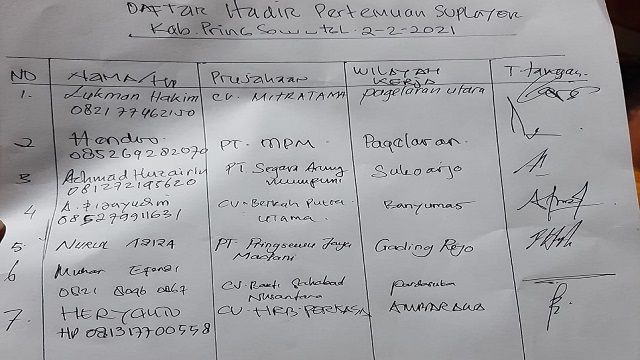 DAFTAR Hadir Pertemuan Suplayer
Kab. Pringsewu tgl. 2-2-2021
NO NAMA Prusahaan WILAYAH KERJA T. tangan
1. Lukman Hakim CV. MITRATAMA pagelaran utara
082177462150
2 Hendro PT. MPM Pagelaran
085269282070
3 Achmad Huzairin PT Segara Arung Sukoarjo
081272195620
4 CV. Berkah Putra Banyumas
085279911631 Utama
5. NURUL AZIZA PT Pringsewu Jaya Gading Rejo
Mandani
6 Muhar Efendi
0821 8096 0867 CV. Bakti Sahabad
Nusantara
7. CV. HRB PERKASA AMBARAWA
HP 081317700558